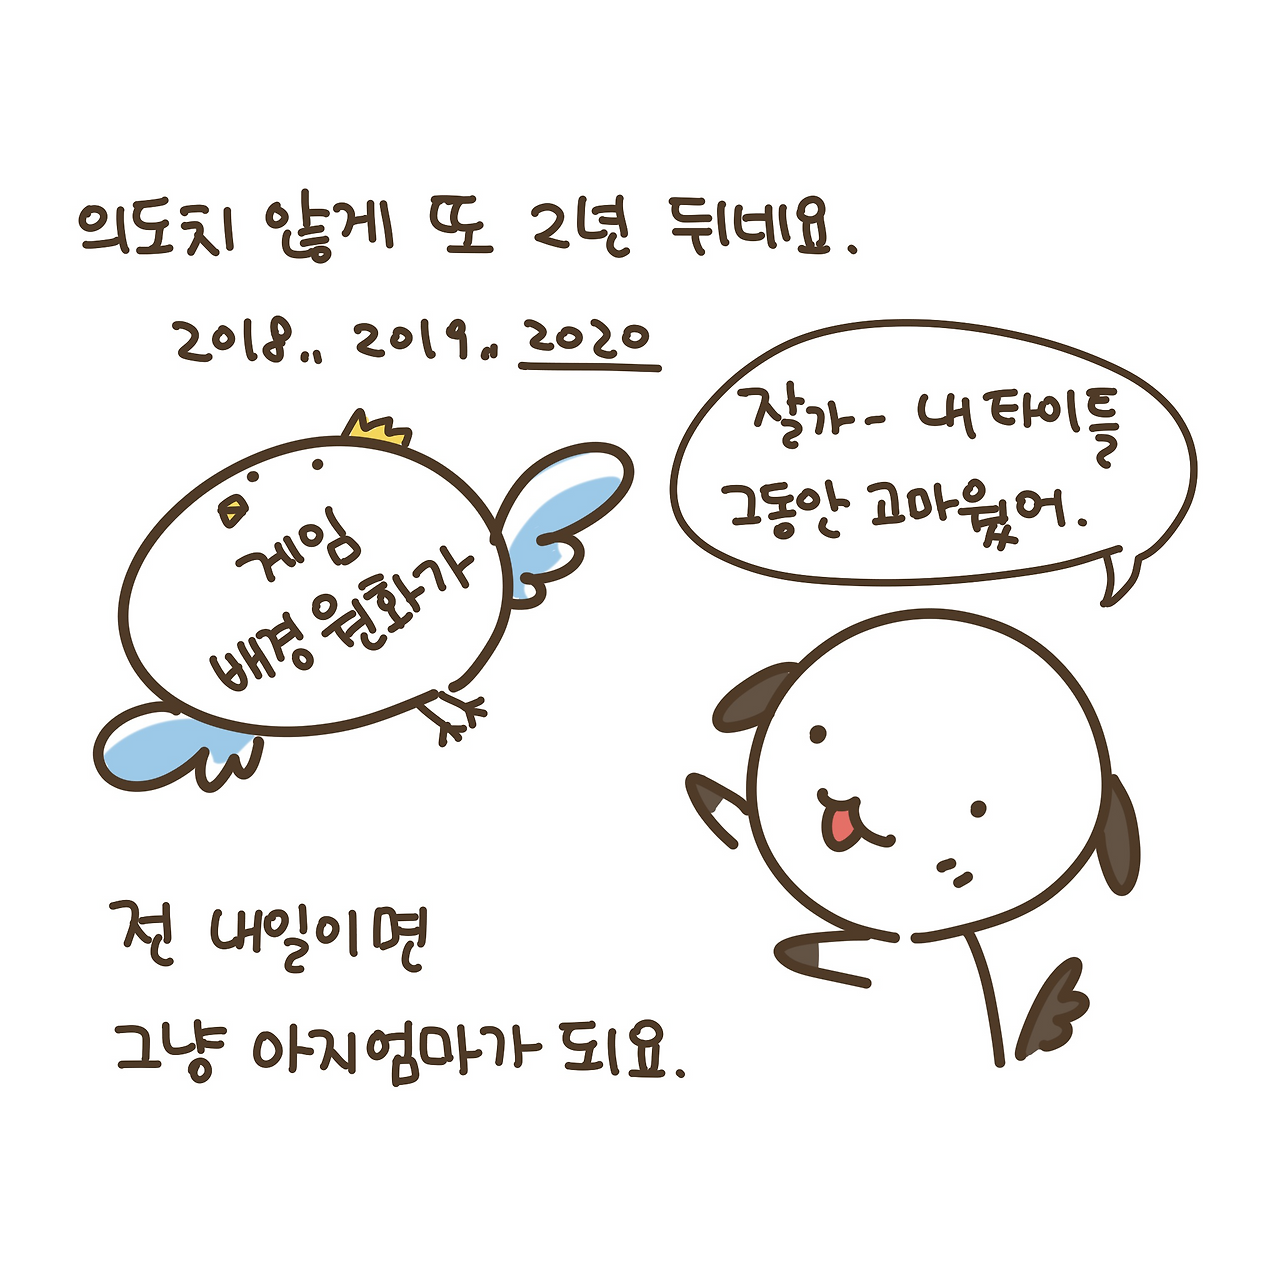 의도치 않게 또 2년 뒤네요.
2018.. 2019.. 2020
잘가- 내 타이틀
그동안 고마웠어.
게임
배경 원화가
전 내일이면
그냥 아지엄마가 되요.